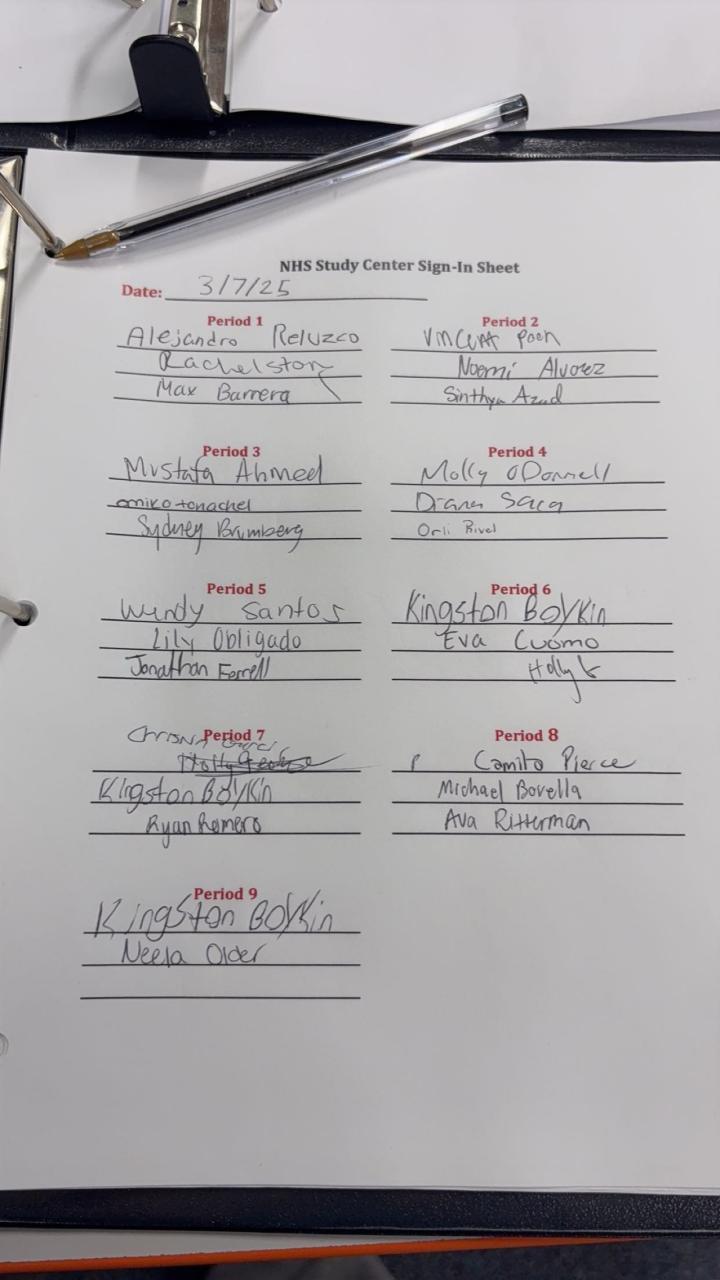 NHS Study Center Sign-In Sheet
Date: 3/7/25
Period 1
Alejandro Reluzco
Rachel story
Max Barrera
Period 2
Vincent Poon
Noemi Alvarez
Sinthya Azad
Period 3
Mustafa Ahmed
amiko tenachel
Sydney Brumberg
Period 4
Molly ODonnell
Diana Saca
Orli Rivel
Period 5
Wendy Santos
Lily Obligado
Jonathan Ferrell
Period 6
Kingston Boykin
Eva Cuomo
Holly
Period 7
Kingston Boykin
Ryan Romero
Period 8
Camila Pierce
Michael Bovella
Ava Ritterman
Period 9
Kingston Boykin
Neela Older